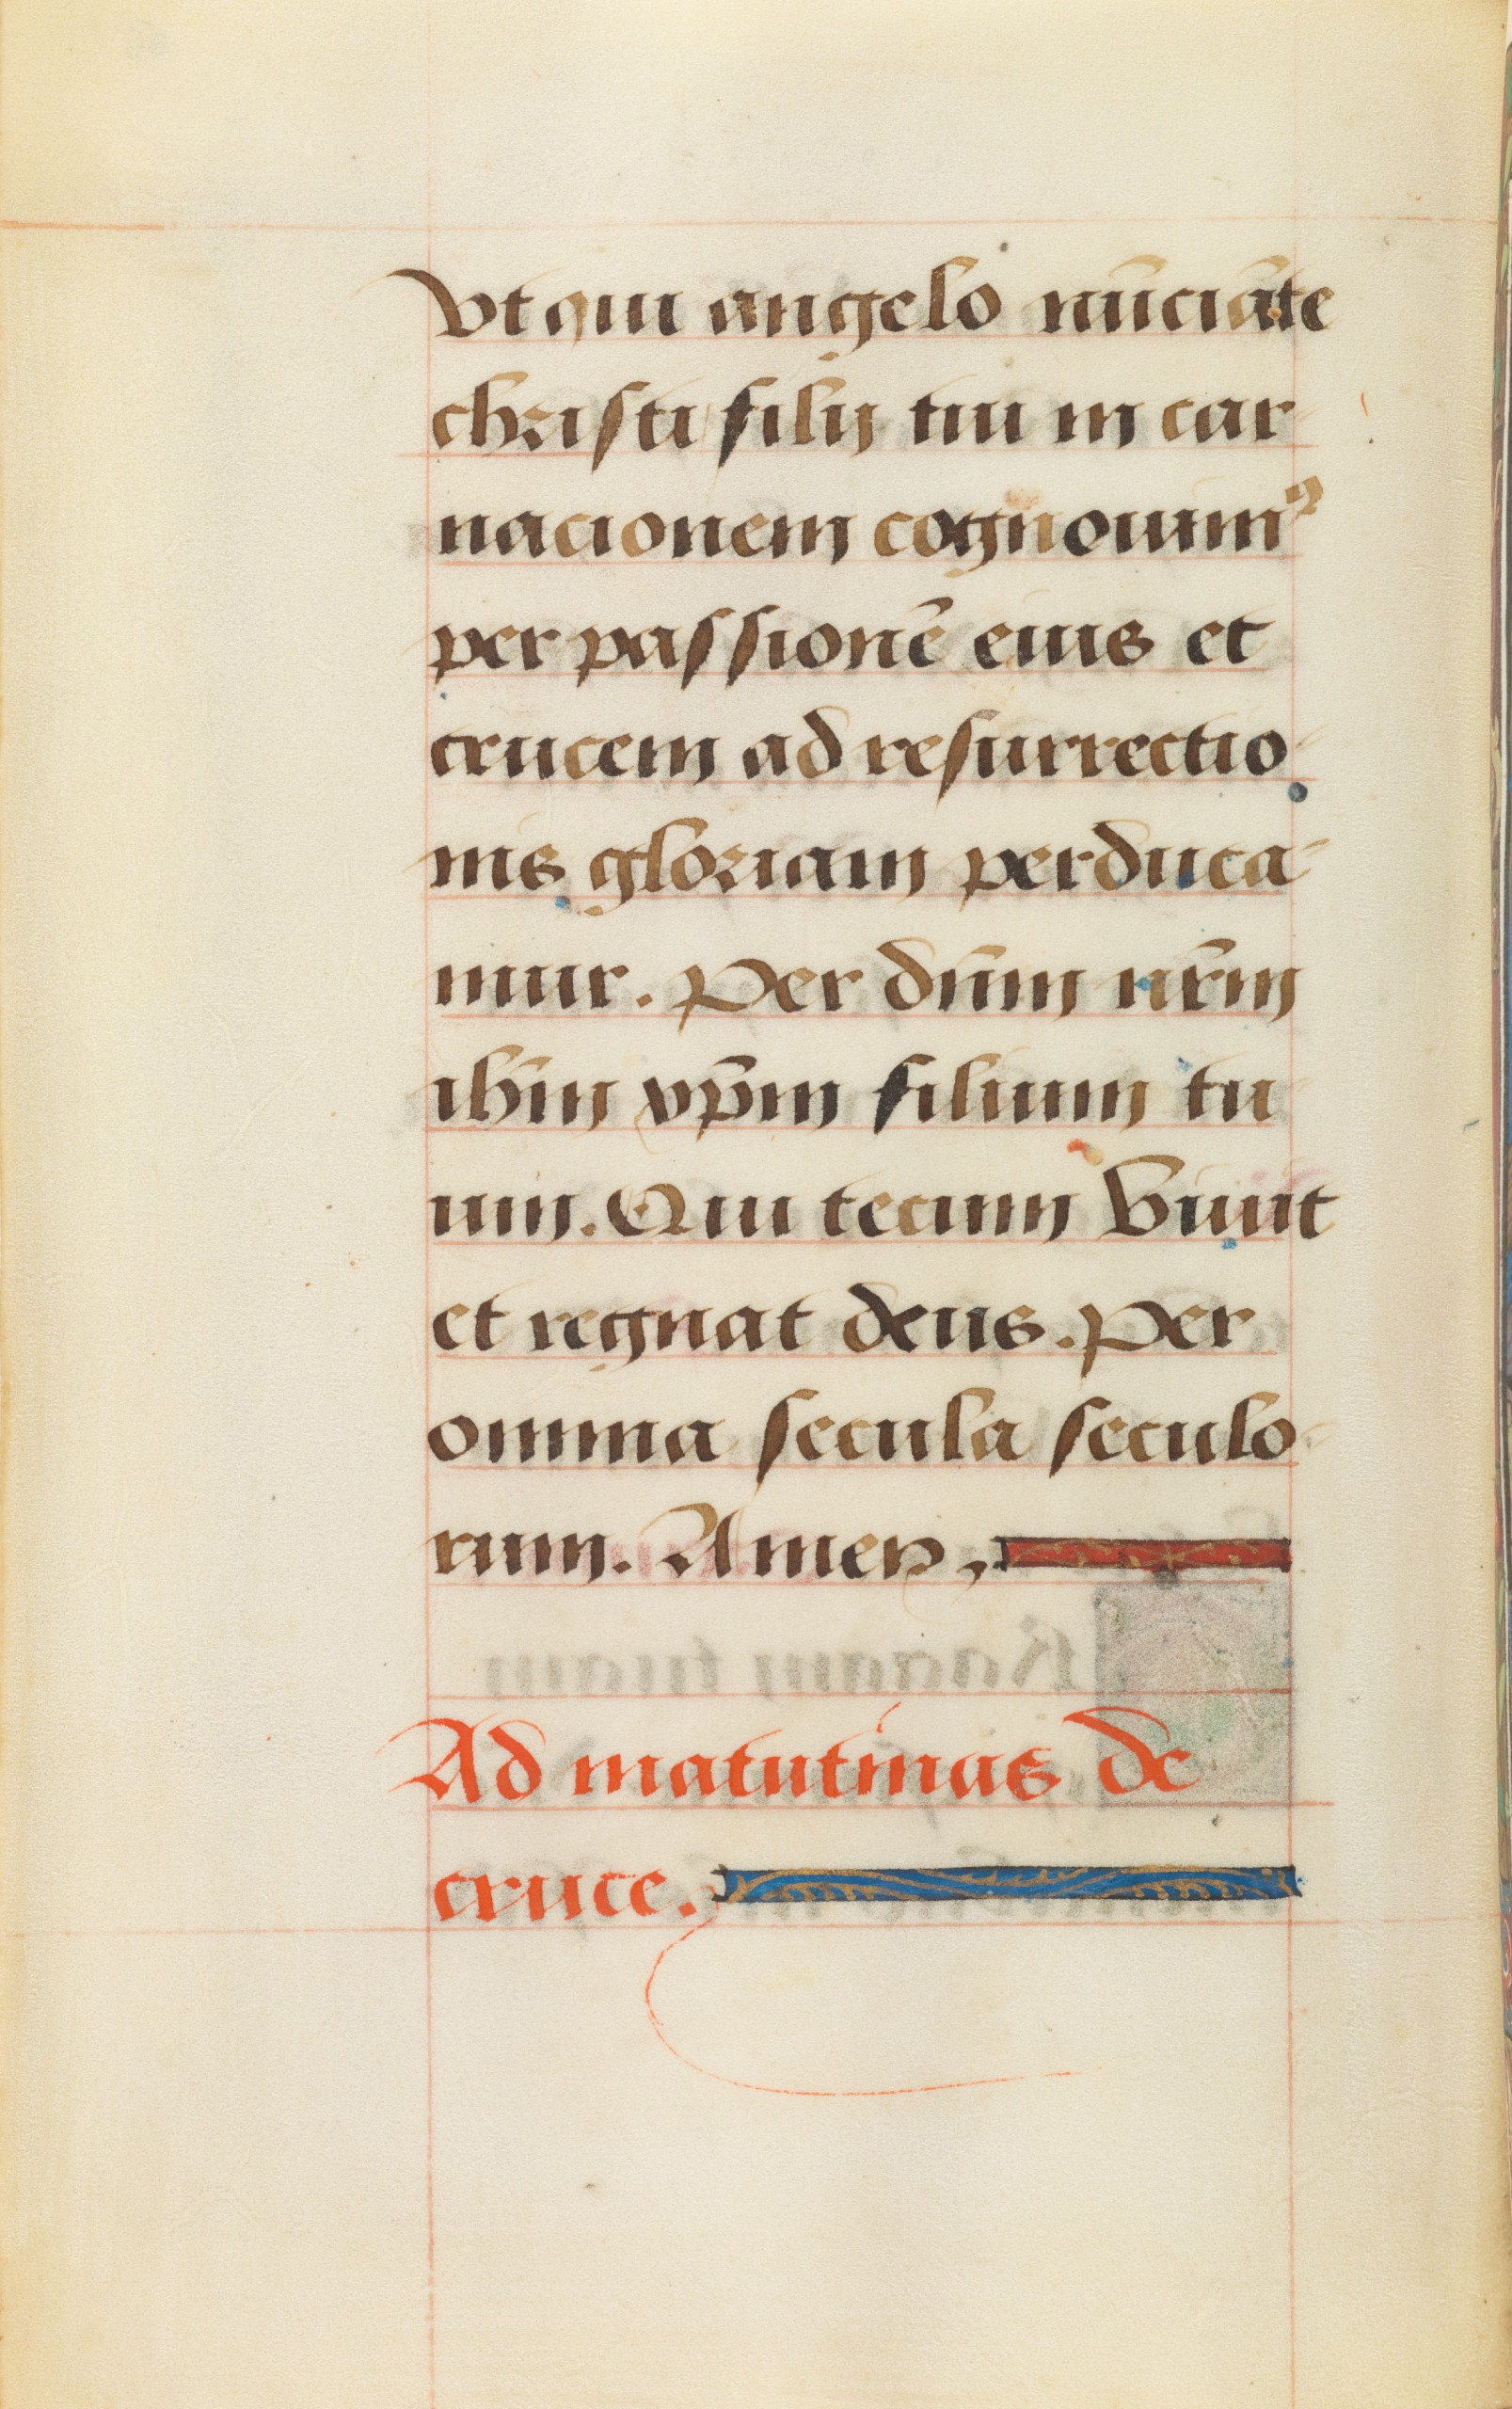 Vt qui angelo nūciāte
christi filij tui in car
nacionem cognouimꝰ
per passionē eius et
crucem ad resurrectio
nis gloriam perduca-
mur. Per dn̄m nr̄m
ihm̄ xp̄m filium tu
um. Qui tecum viuit
et regnat deus. Per
omnia secula seculo-
rum. Amen,
Ad matutinas de
cruce.